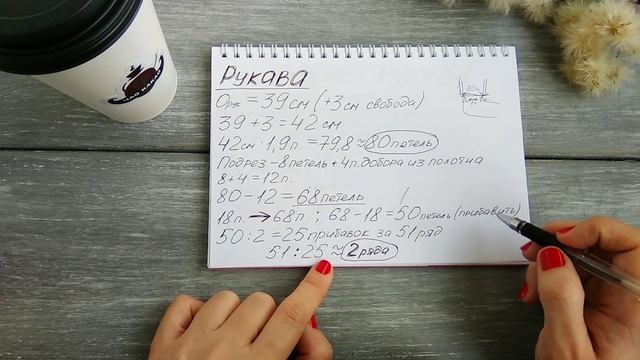 Рукава
Орук = 39см (+3см свобода)
39 + 3 = 42 см
42см · 1,9п. = 79,8 ≈ 80 петель
Подрез - 8 петель + 4п. добора из полотна
8 + 4 = 12п.
80 - 12 = 68 петель
18п. → 68п ; 68 - 18 = 50 петель (прибавить)
50 : 2 = 25 прибавок за 51 ряд
51 : 25 ≈ 2 ряда